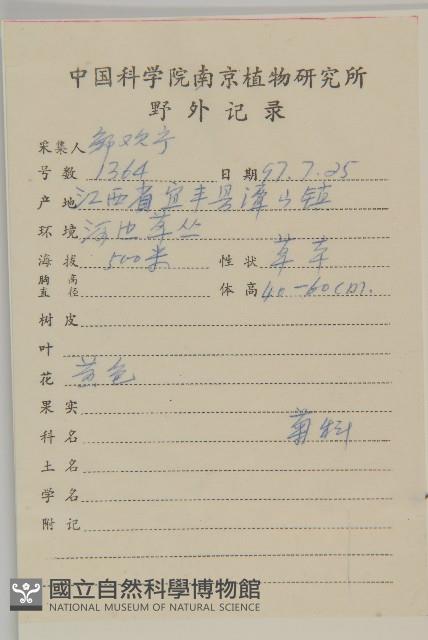 中国科学院南京植物研究所
野外记录
采集人
号数 1364 日期 97.7.25
产地 江西省宜丰县潭山镇
环境 草丛
海拔 500米 性状 草本
胸高直径 体高 40-60cm.
树皮
叶
花 黄色
果实
科名 菊科
土名
学名
附记
國立自然科學博物館
NATIONAL MUSEUM OF NATURAL SCIENCE